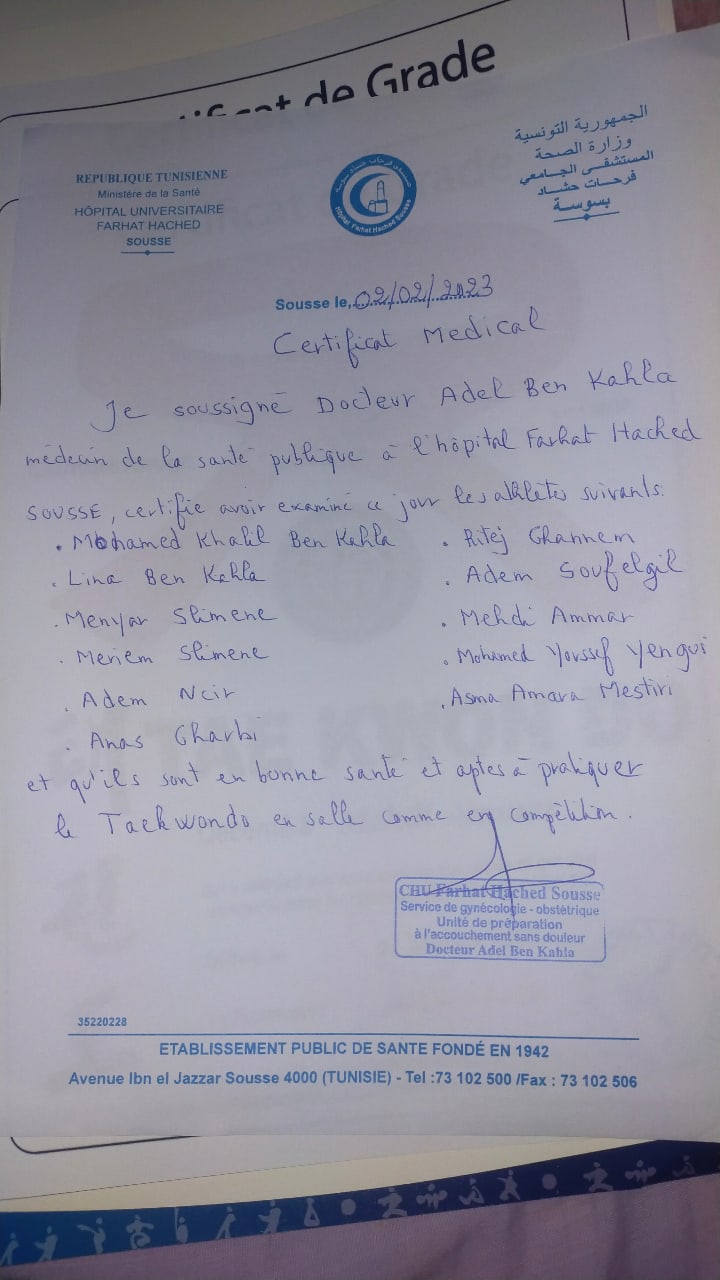 Certificat de Grade
REPUBLIQUE TUNISIENNE
Ministère de la Santé
HÔPITAL UNIVERSITAIRE
FARHAT HACHED
SOUSSE
Hôpital Farhat Hached Sousse
الجمهورية التونسية
وزارة الصحة
المستشفى الجامعي
فرحات حشاد
بسوسة
Sousse le, 02/02/2023
Certificat Medical
Je soussigné Docteur Adel Ben Kahla
médecin de la santé publique à l'hôpital Farhat Hached
SOUSSE, certifie avoir examiné ce jour les athlètes suivants:
. Mohamed Khalil Ben Kahla
. Lina Ben Kahla
. Menyar Slimene
. Meriem Slimene
. Adem Ncir
. Anas Gharbi
. Ritej Ghannem
. Adem Soufelgil
. Mehdi Ammar
. Mohamed Youssef Yengui
. Asma Amara Mestiri
et qu'ils sont en bonne santé et aptes à pratiquer
le Taekwondo en salle comme en compétition.
CHU Farhat Hached Sousse
Service de gynécologie - obstétrique
Unité de préparation
à l'accouchement sans douleur
Docteur Adel Ben Kahla
35220228
ETABLISSEMENT PUBLIC DE SANTE FONDÉ EN 1942
Avenue Ibn el Jazzar Sousse 4000 (TUNISIE) - Tel :73 102 500 /Fax : 73 102 506